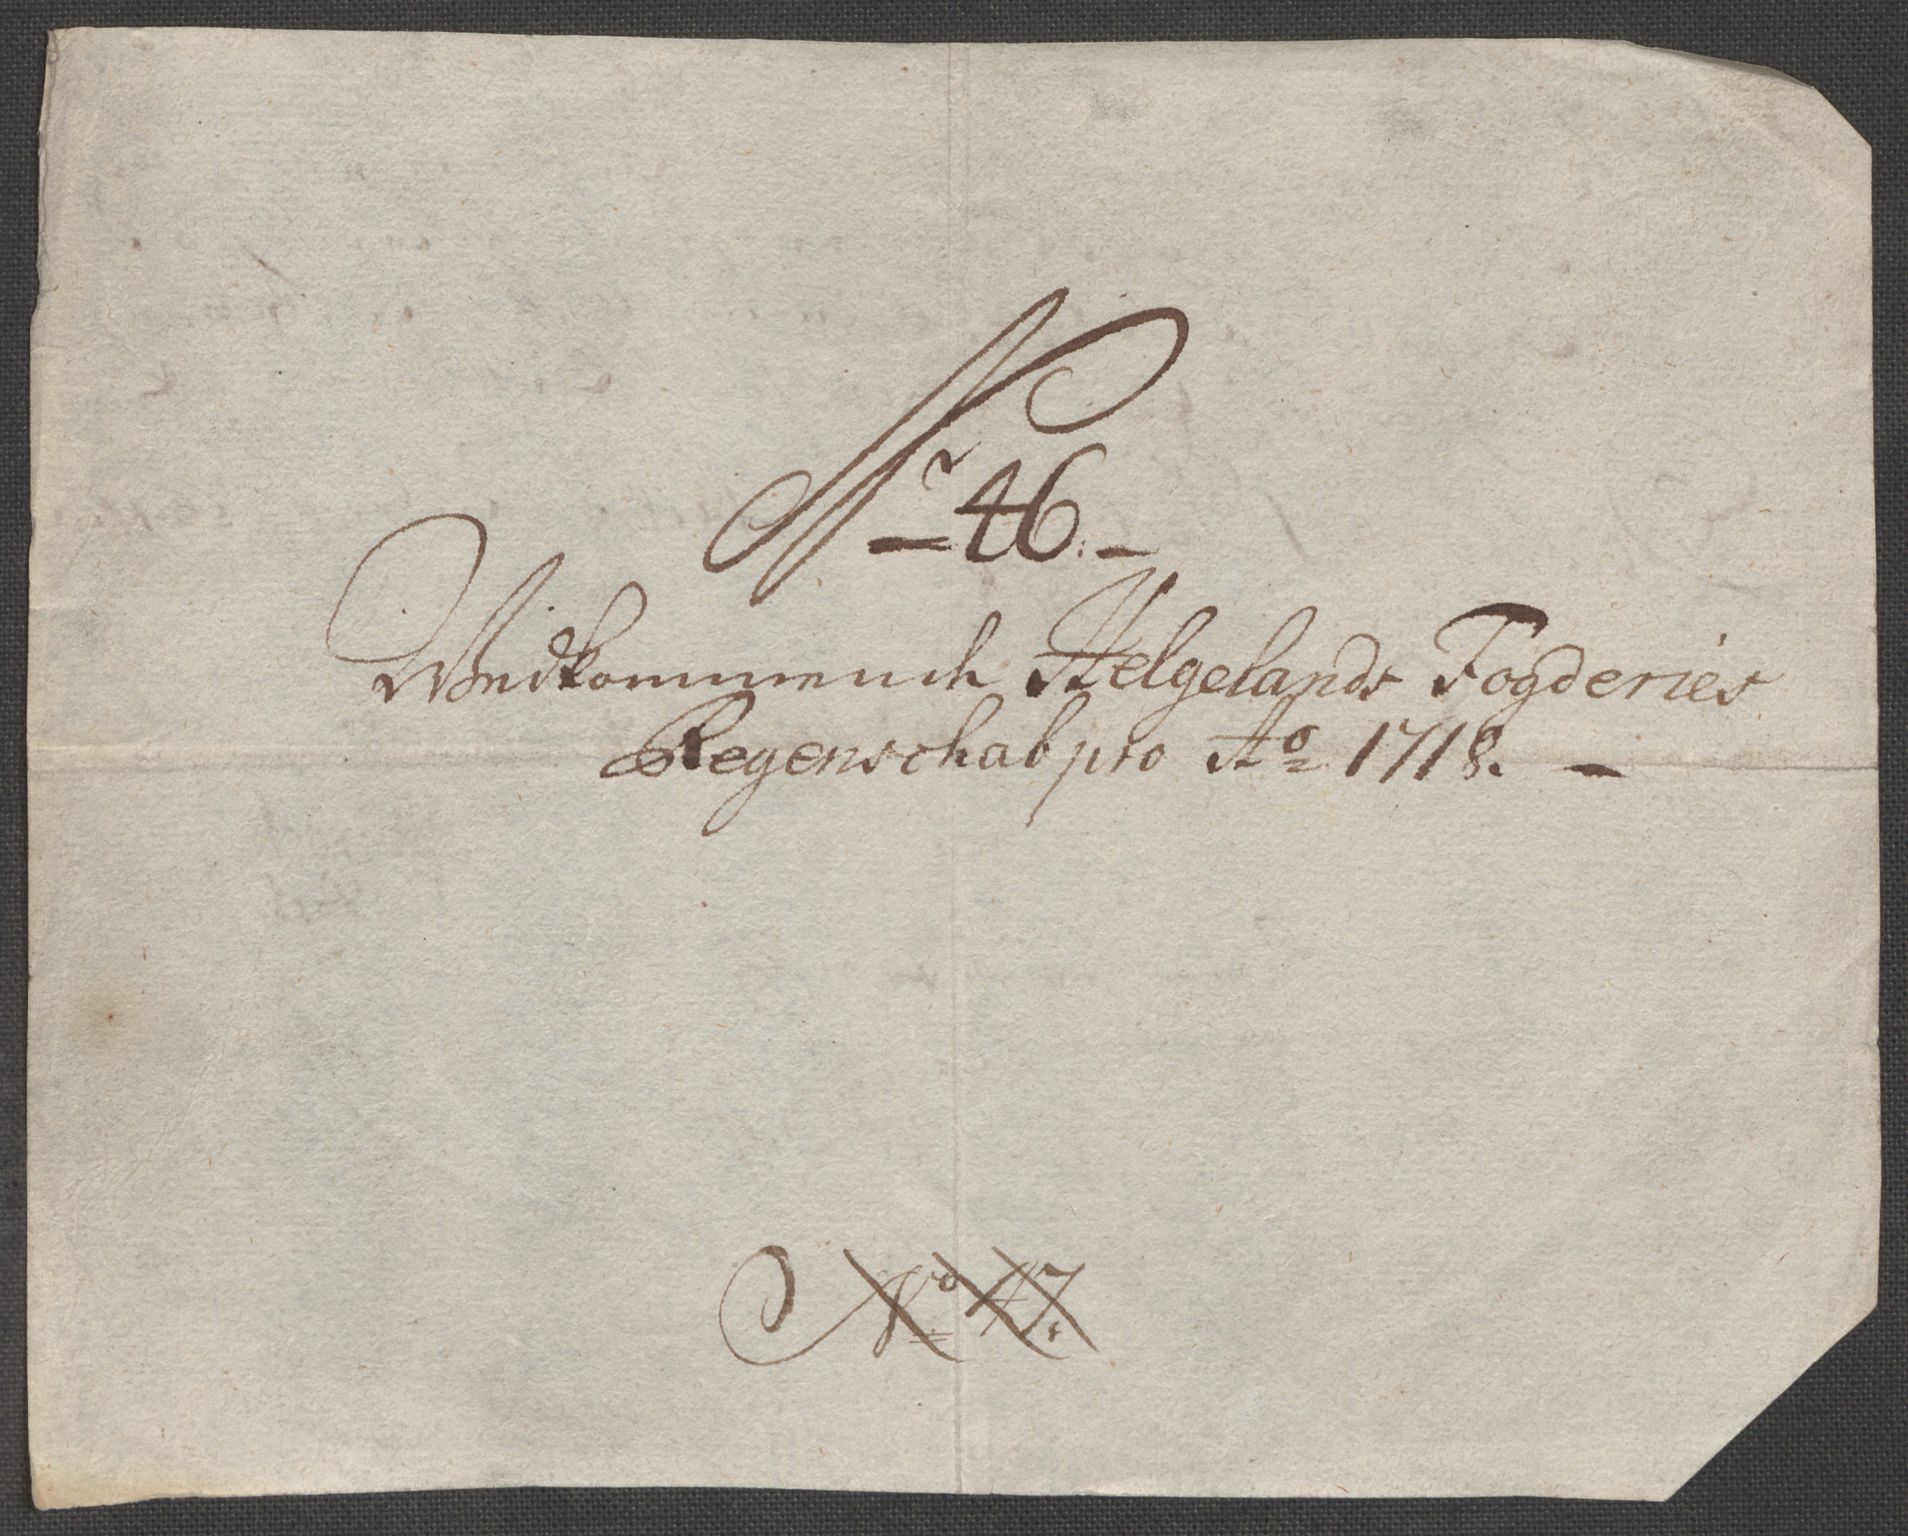 Nr 46.
Wedkommende Helgelands Fogderies
Regenschab pro Ao 1718.
No 47.